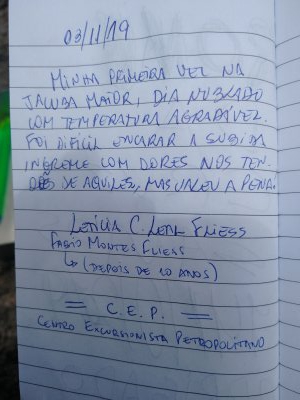 03/11/19
MINHA PRIMEIRA VEZ NA
JACUBA MAIOR, DIA NUBLADO
COM TEMPERATURA AGRADÁVEL.
FOI DIFÍCIL ENCARAR A SUBIDA
INGREME COM DORES NOS TEN-
DÕES DE AQUILES, MAS VALEU A PENA.
LETÍCIA C. LEAL FLIESS
FABIO MONTES FLIESS
↳ (DEPOIS DE 10 ANOS)
= C.E.P. =
CENTRO EXCURSIONISTA PETROPOLITANO